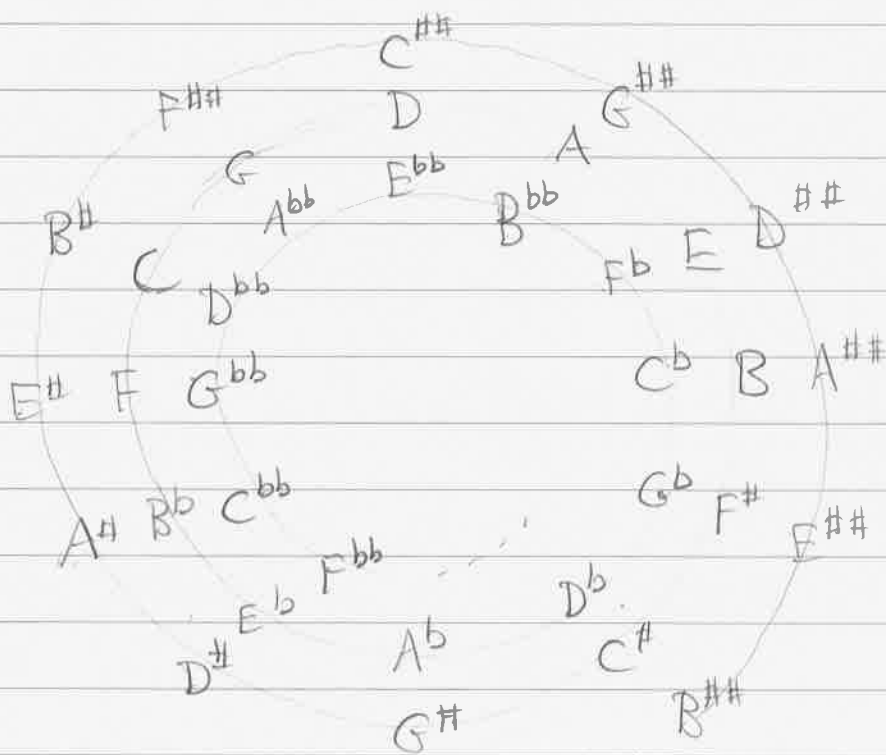 C##
F## D G##
G A
Abb Ebb Bbb
B# D##
C Dbb Fb E
E# F Gbb Cb B A##
A# Bb Cbb Gb F# E##
Fbb
D# Eb Ab Db C#
G# B##